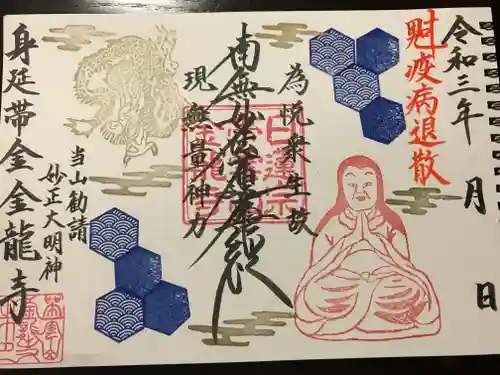 令和三年 月 日
魁疫病退散
為悦衆生故
南無妙法蓮華経
現無量神力
日蓮宗
当山勧請
妙正大明神
身延帯金金龍寺